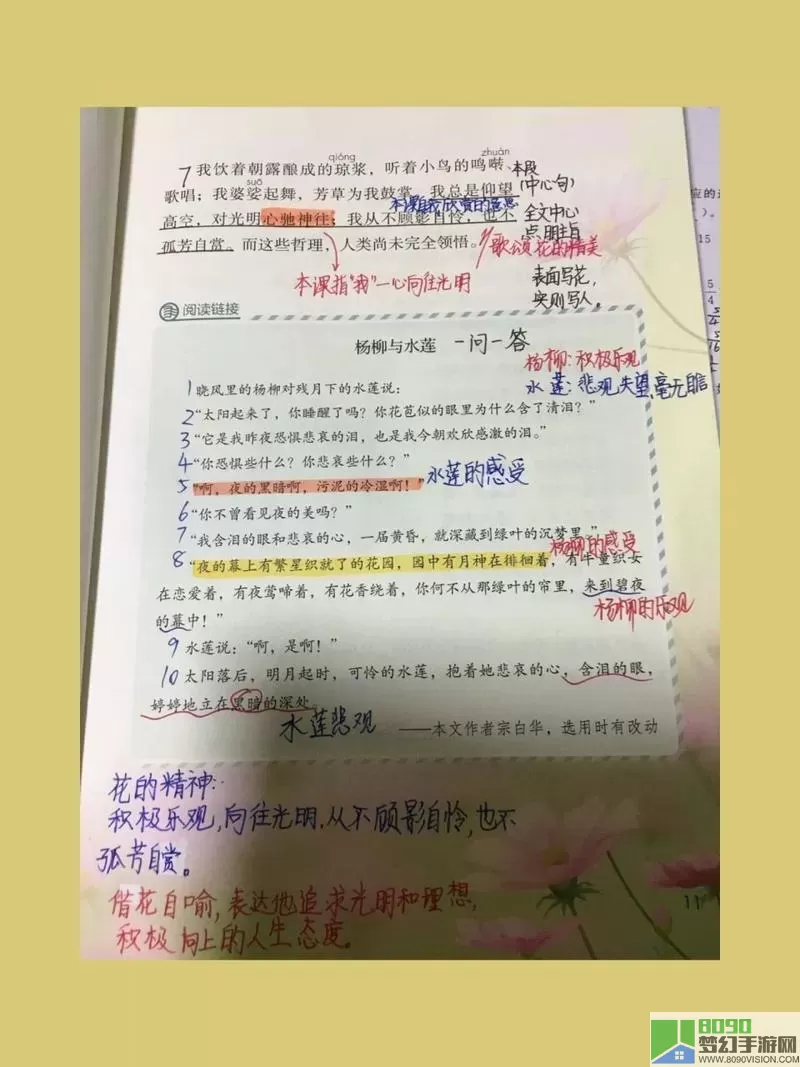 qióng zhuàn
7 我饮着朝露酿成的琼浆，听着小鸟的鸣啭、
本段
suō
(中心句)
歌唱；我婆娑起舞，芳草为我鼓掌。我总是仰望
本课自我欣赏的意思
高空，对光明心驰神往；我从不顾影自怜，也不
全文中心
点明主旨
孤芳自赏。而这些哲理，人类尚未完全领悟。
歌颂花的精美
本课指“我”一心向往光明
表面写花，
实则写人。
阅读链接
杨柳与水莲 一问一答
杨柳：积极乐观
水莲：悲观失望,毫无自信
1 晓风里的杨柳对残月下的水莲说：
2 “太阳起来了，你睡醒了吗？你花苞似的眼里为什么含了清泪？”
3 “它是我昨夜恐惧悲哀的泪，也是我今朝欢欣感激的泪。”
4 “你恐惧些什么？你悲哀些什么？”
5 “啊，夜的黑暗啊，污泥的冷湿啊！” 水莲的感受
6 “你不曾看见夜的美吗？”
7 “我含泪的眼和悲哀的心，一届黄昏，就深藏到绿叶的沉梦里。”
杨柳的感受
8 “夜的幕上有繁星织就了的花园，园中有月神在徘徊着，有牛童织女
在恋爱着，有夜莺啼着，有花香绕着，你何不从那绿叶的帘里，来到碧夜
杨柳的乐观
的幕中！”
9 水莲说：“啊，是啊！”
10 太阳落后，明月起时，可怜的水莲，抱着她悲哀的心，含泪的眼，
婷婷地立在黑暗的深处。
水莲悲观
——本文作者宗白华，选用时有改动
花的精神：
积极乐观,向往光明.从不顾影自怜,也不
孤芳自赏。
借花自喻,表达他追求光明和理想,
积极向上的人生态度。
11
15
5
4
8090
梦幻手游网
WWW.8090VISION.COM